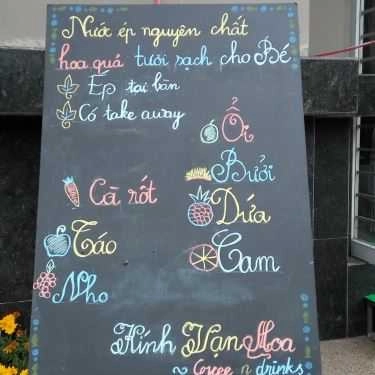 Nước ép nguyên chất
hoa quả tươi sạch cho Bé
Ép tại bàn
Có take away
Ổi
Bưởi
Cà rốt
Dứa
Táo
Cam
Nho
Kính Vạn Hoa
~ Coffee n drinks